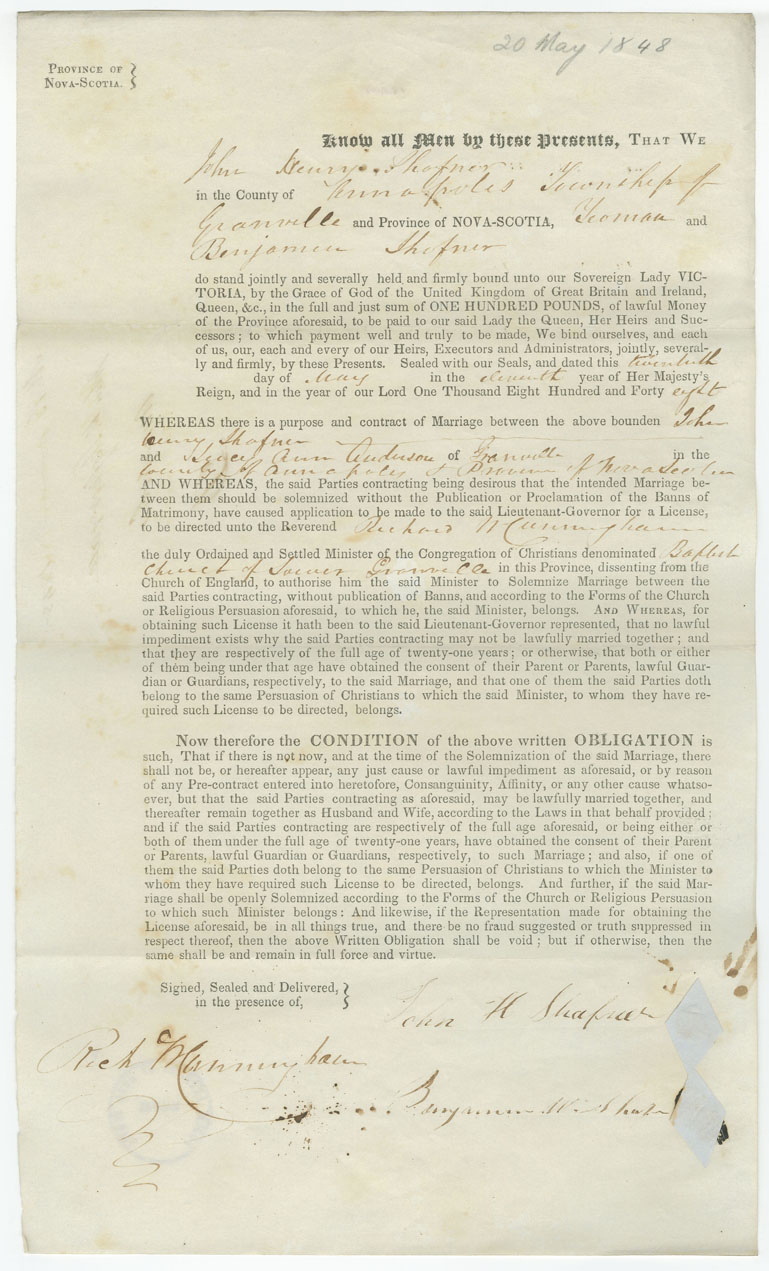 20 May 1848
PROVINCE OF
NOVA-SCOTIA.
Know all Men by these Presents, THAT WE
John Henry Shafner
in the County of Annapolis Township of
Granville and Province of NOVA-SCOTIA, Yeoman and
Benjamin Shafner
do stand jointly and severally held and firmly bound unto our Sovereign Lady VIC-
TORIA, by the Grace of God of the United Kingdom of Great Britain and Ireland,
Queen, &c., in the full and just sum of ONE HUNDRED POUNDS, of lawful Money
of the Province aforesaid, to be paid to our said Lady the Queen, Her Heirs and Suc-
cessors; to which payment well and truly to be made, We bind ourselves, and each
of us, our, each and every of our Heirs, Executors and Administrators, jointly, several-
ly and firmly, by these Presents. Sealed with our Seals, and dated this twentieth
day of May in the eleventh year of Her Majesty's
Reign, and in the year of our Lord One Thousand Eight Hundred and Forty eight
WHEREAS there is a purpose and contract of Marriage between the above bounden John
Henry Shafner
and Ann Anderson of Granville in the
County of Annapolis & Province of Nova Scotia
AND WHEREAS, the said Parties contracting being desirous that the intended Marriage be-
tween them should be solemnized without the Publication or Proclamation of the Banns of
Matrimony, have caused application to be made to the said Lieutenant-Governor for a License,
to be directed unto the Reverend Richard W Cunningham
the duly Ordained and Settled Minister of the Congregation of Christians denominated Baptist
Church of Lower Granville in this Province, dissenting from the
Church of England, to authorise him the said Minister to Solemnize Marriage between the
said Parties contracting, without publication of Banns, and according to the Forms of the Church
or Religious Persuasion aforesaid, to which he, the said Minister, belongs. AND WHEREAS, for
obtaining such License it hath been to the said Lieutenant-Governor represented, that no lawful
impediment exists why the said Parties contracting may not be lawfully married together; and
that they are respectively of the full age of twenty-one years; or otherwise, that both or either
of them being under that age have obtained the consent of their Parent or Parents, lawful Guar-
dian or Guardians, respectively, to the said Marriage, and that one of them the said Parties doth
belong to the same Persuasion of Christians to which the said Minister, to whom they have re-
quired such License to be directed, belongs.
Now therefore the CONDITION of the above written OBLIGATION is
such, That if there is not now, and at the time of the Solemnization of the said Marriage, there
shall not be, or hereafter appear, any just cause or lawful impediment as aforesaid, or by reason
of any Pre-contract entered into heretofore, Consanguinity, Affinity, or any other cause whatso-
ever, but that the said Parties contracting as aforesaid, may be lawfully married together, and
thereafter remain together as Husband and Wife, according to the Laws in that behalf provided;
and if the said Parties contracting are respectively of the full age aforesaid, or being either or
both of them under the full age of twenty-one years, have obtained the consent of their Parent
or Parents, lawful Guardian or Guardians, respectively, to such Marriage; and also, if one of
them the said Parties doth belong to the same Persuasion of Christians to which the Minister to
whom they have required such License to be directed, belongs. And further, if the said Mar-
riage shall be openly Solemnized according to the Forms of the Church or Religious Persuasion
to which such Minister belongs: And likewise, if the Representation made for obtaining the
License aforesaid, be in all things true, and there be no fraud suggested or truth suppressed in
respect thereof, then the above Written Obligation shall be void; but if otherwise, then the
same shall be and remain in full force and virtue.
Signed, Sealed and Delivered,
in the presence of,
John H Shafner
Rich W Cunningham
Benjamin W. Shafner